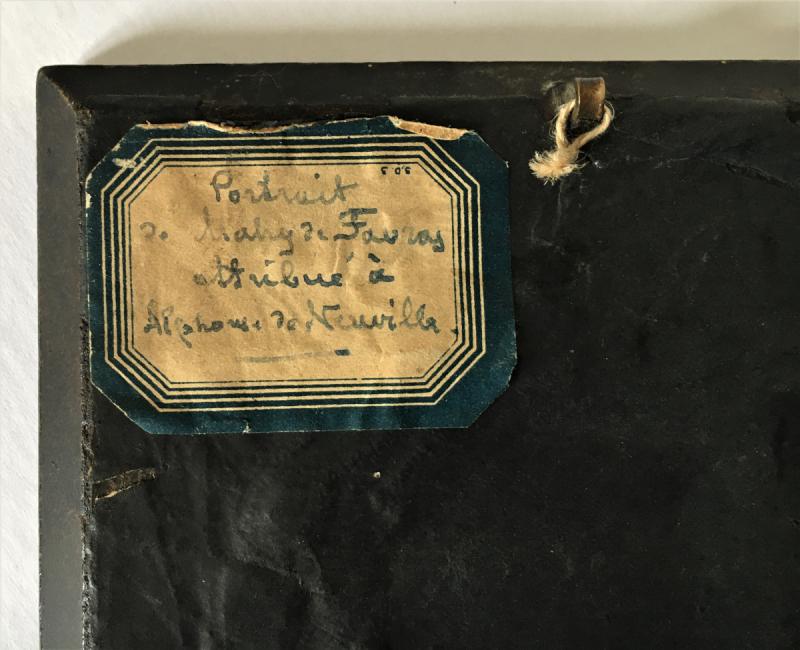 Portrait
de Mahy de Favras
attribué à
Alphonse de Neuville.
503